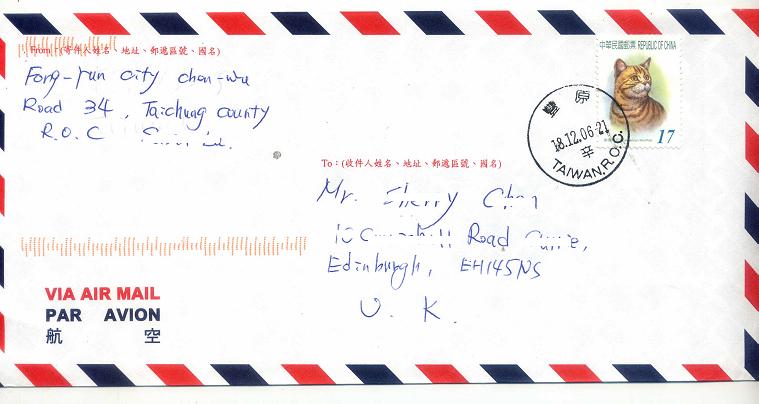 From：(寄件人姓名、地址、郵遞區號、國名)
Fong-yun city chon-wu
Road 34, Taichung county
R.O.C
中華民國郵票 REPUBLIC OF CHINA
17
豐原
18.12.06-21
辛
TAIWAN, R.O.C.
To：(收件人姓名、地址、郵遞區號、國名)
Mr.
Road
Edinburgh, EH145NS
U. K.
VIA AIR MAIL
PAR AVION
航空